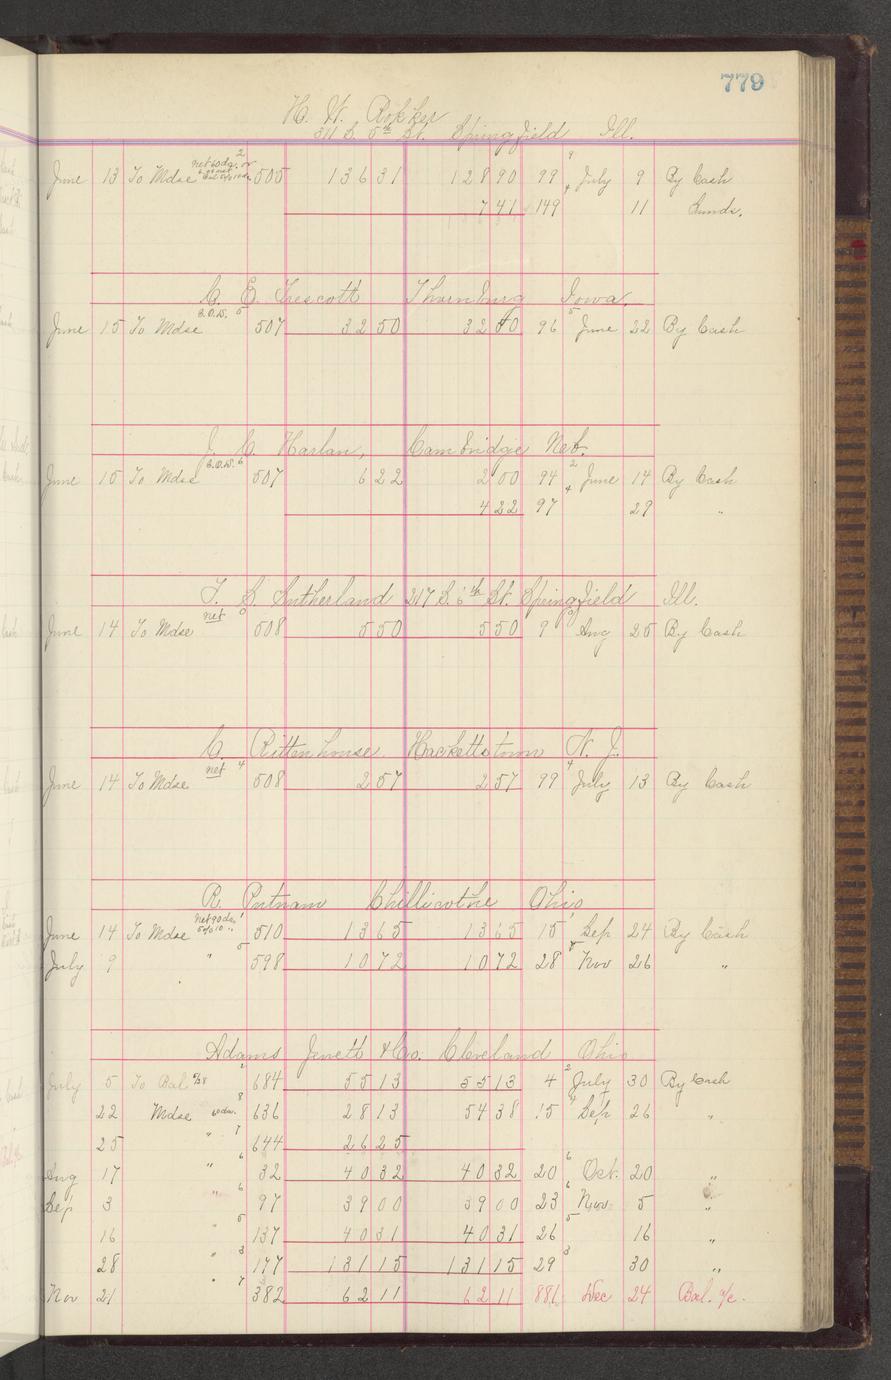 779
H. W. Rokker
311 S. 5th St. Springfield Ill.
June 13 To Mdse net 60 ds. or 2 505 136 31 128 90 99 9 July 9 By Cash
7 41 149 4 11 Sunds.
C. E. Trescott Thornburg Iowa.
June 15 To Mdse C.O.D. 5 507 32 50 32 50 96 5 June 22 By Cash
J. C. Harlan, Cambridge Neb.
June 15 To Mdse C.O.D. 6 507 6 22 2 00 94 2 June 14 By Cash
4 22 97 4 29 "
T. S. Sutherland 217 S. 6th St. Springfield Ill.
June 14 To Mdse net 0 508 5 50 5 50 9 0 Aug 25 By Cash
C. Rittenhouse Hackettstown N. J.
June 14 To Mdse net 4 508 2 57 2 57 99 4 July 13 By Cash
R. Putnam Chillicothe Ohio
June 14 To Mdse net 90 ds. 1 510 13 65 13 65 15 1 Sep 24 By Cash
July 9 " 5 598 10 72 10 72 28 8 Nov 26 "
Adams Jewett & Co. Cleveland Ohio
July 5 To Bal 2 684 55 13 55 13 4 2 July 30 By Cash
22 Mdse 60 ds. 8 636 28 13 54 38 15 Sep 26 "
25 " 7 644 26 25
Aug 17 " 6 32 40 32 40 32 20 6 Oct. 20 "
Sep 3 " 6 97 39 00 39 00 23 6 Nov 5 "
16 " 5 137 40 31 40 31 26 5 16 "
28 " 3 177 131 15 131 15 29 3 30 "
Nov 21 " 7 382 62 11 62 11 881 Dec 24 Bal. a/c.